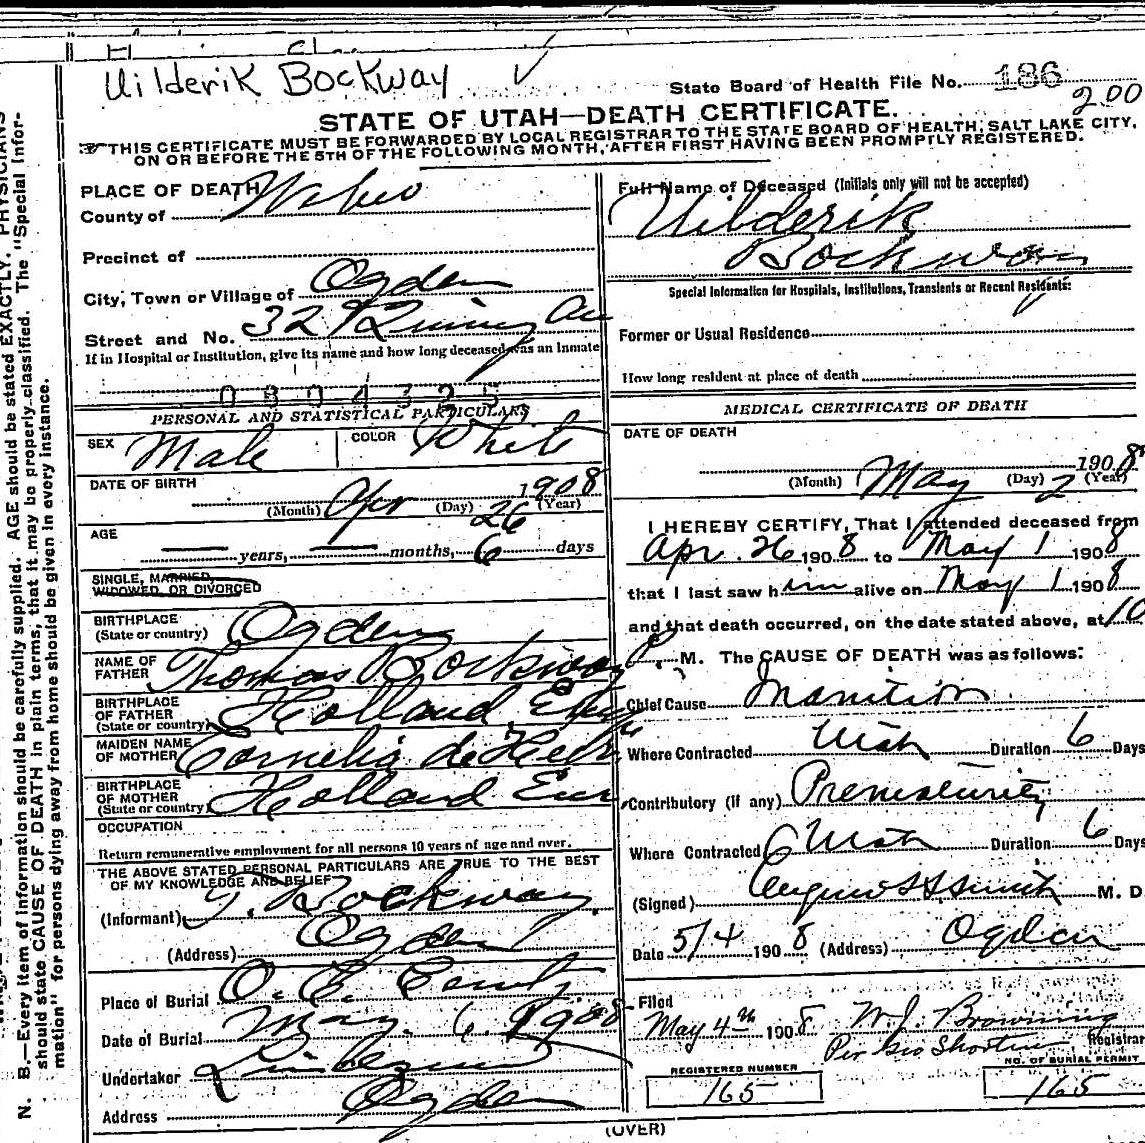 Uilderik Bockway
State Board of Health File No. 186
2.00
STATE OF UTAH—DEATH CERTIFICATE.
THIS CERTIFICATE MUST BE FORWARDED BY LOCAL REGISTRAR TO THE STATE BOARD OF HEALTH, SALT LAKE CITY,
ON OR BEFORE THE 5TH OF THE FOLLOWING MONTH, AFTER FIRST HAVING BEEN PROMPTLY REGISTERED.
PLACE OF DEATH
County of Weber
Precinct of
City, Town or Village of Ogden
Street and No.
If in Hospital or Institution, give its name and how long deceased was an Inmate
0804325
PERSONAL AND STATISTICAL PARTICULARS
SEX Male COLOR White
DATE OF BIRTH
1908
(Month) Apr (Day) 26 (Year)
AGE
years, months, 6 days
SINGLE, MARRIED,
WIDOWED, OR DIVORCED
BIRTHPLACE
(State or country) Ogden
NAME OF
FATHER Thomas Bockway
BIRTHPLACE
OF FATHER
(State or country) Holland
MAIDEN NAME
OF MOTHER Cornelia de
BIRTHPLACE
OF MOTHER
(State or country) Holland Eur.
OCCUPATION
Return remunerative employment for all persons 10 years of age and over.
THE ABOVE STATED PERSONAL PARTICULARS ARE TRUE TO THE BEST
OF MY KNOWLEDGE AND BELIEF
(Informant) T. Bockway
(Address) Ogden
Place of Burial O. C. Cemt.
Date of Burial May. 6. 1908
Undertaker
Address Ogden
Full Name of Deceased (Initials only will not be accepted)
Uilderik
Bockway
Special Information for Hospitals, Institutions, Transients or Recent Residents:
Former or Usual Residence
How long resident at place of death
MEDICAL CERTIFICATE OF DEATH
DATE OF DEATH
1908
(Month) May (Day) 2 (Year)
I HEREBY CERTIFY, That I attended deceased from
Apr. 26 1908 to May 1 1908
that I last saw him alive on May 1 1908
and that death occurred, on the date stated above, at 10
P. M. The CAUSE OF DEATH was as follows:
Chief Cause Inanition
Where Contracted Utah Duration 6 Days
Contributory (if any) Prematurity
Where Contracted Utah Duration 6 Days
(Signed) M. D.
Date 5/4 1908 (Address) Ogden
Filed
May 4th 1908 W. J. Browning
Per Geo Shorten Registrar
REGISTERED NUMBER
165
NO. OF BURIAL PERMIT
165
(OVER)
N. B.—Every item of information should be carefully supplied. AGE should be stated EXACTLY. PHYSICIANS
should state CAUSE OF DEATH in plain terms, that it may be properly classified. The "Special Infor-
mation" for persons dying away from home should be given in every instance.